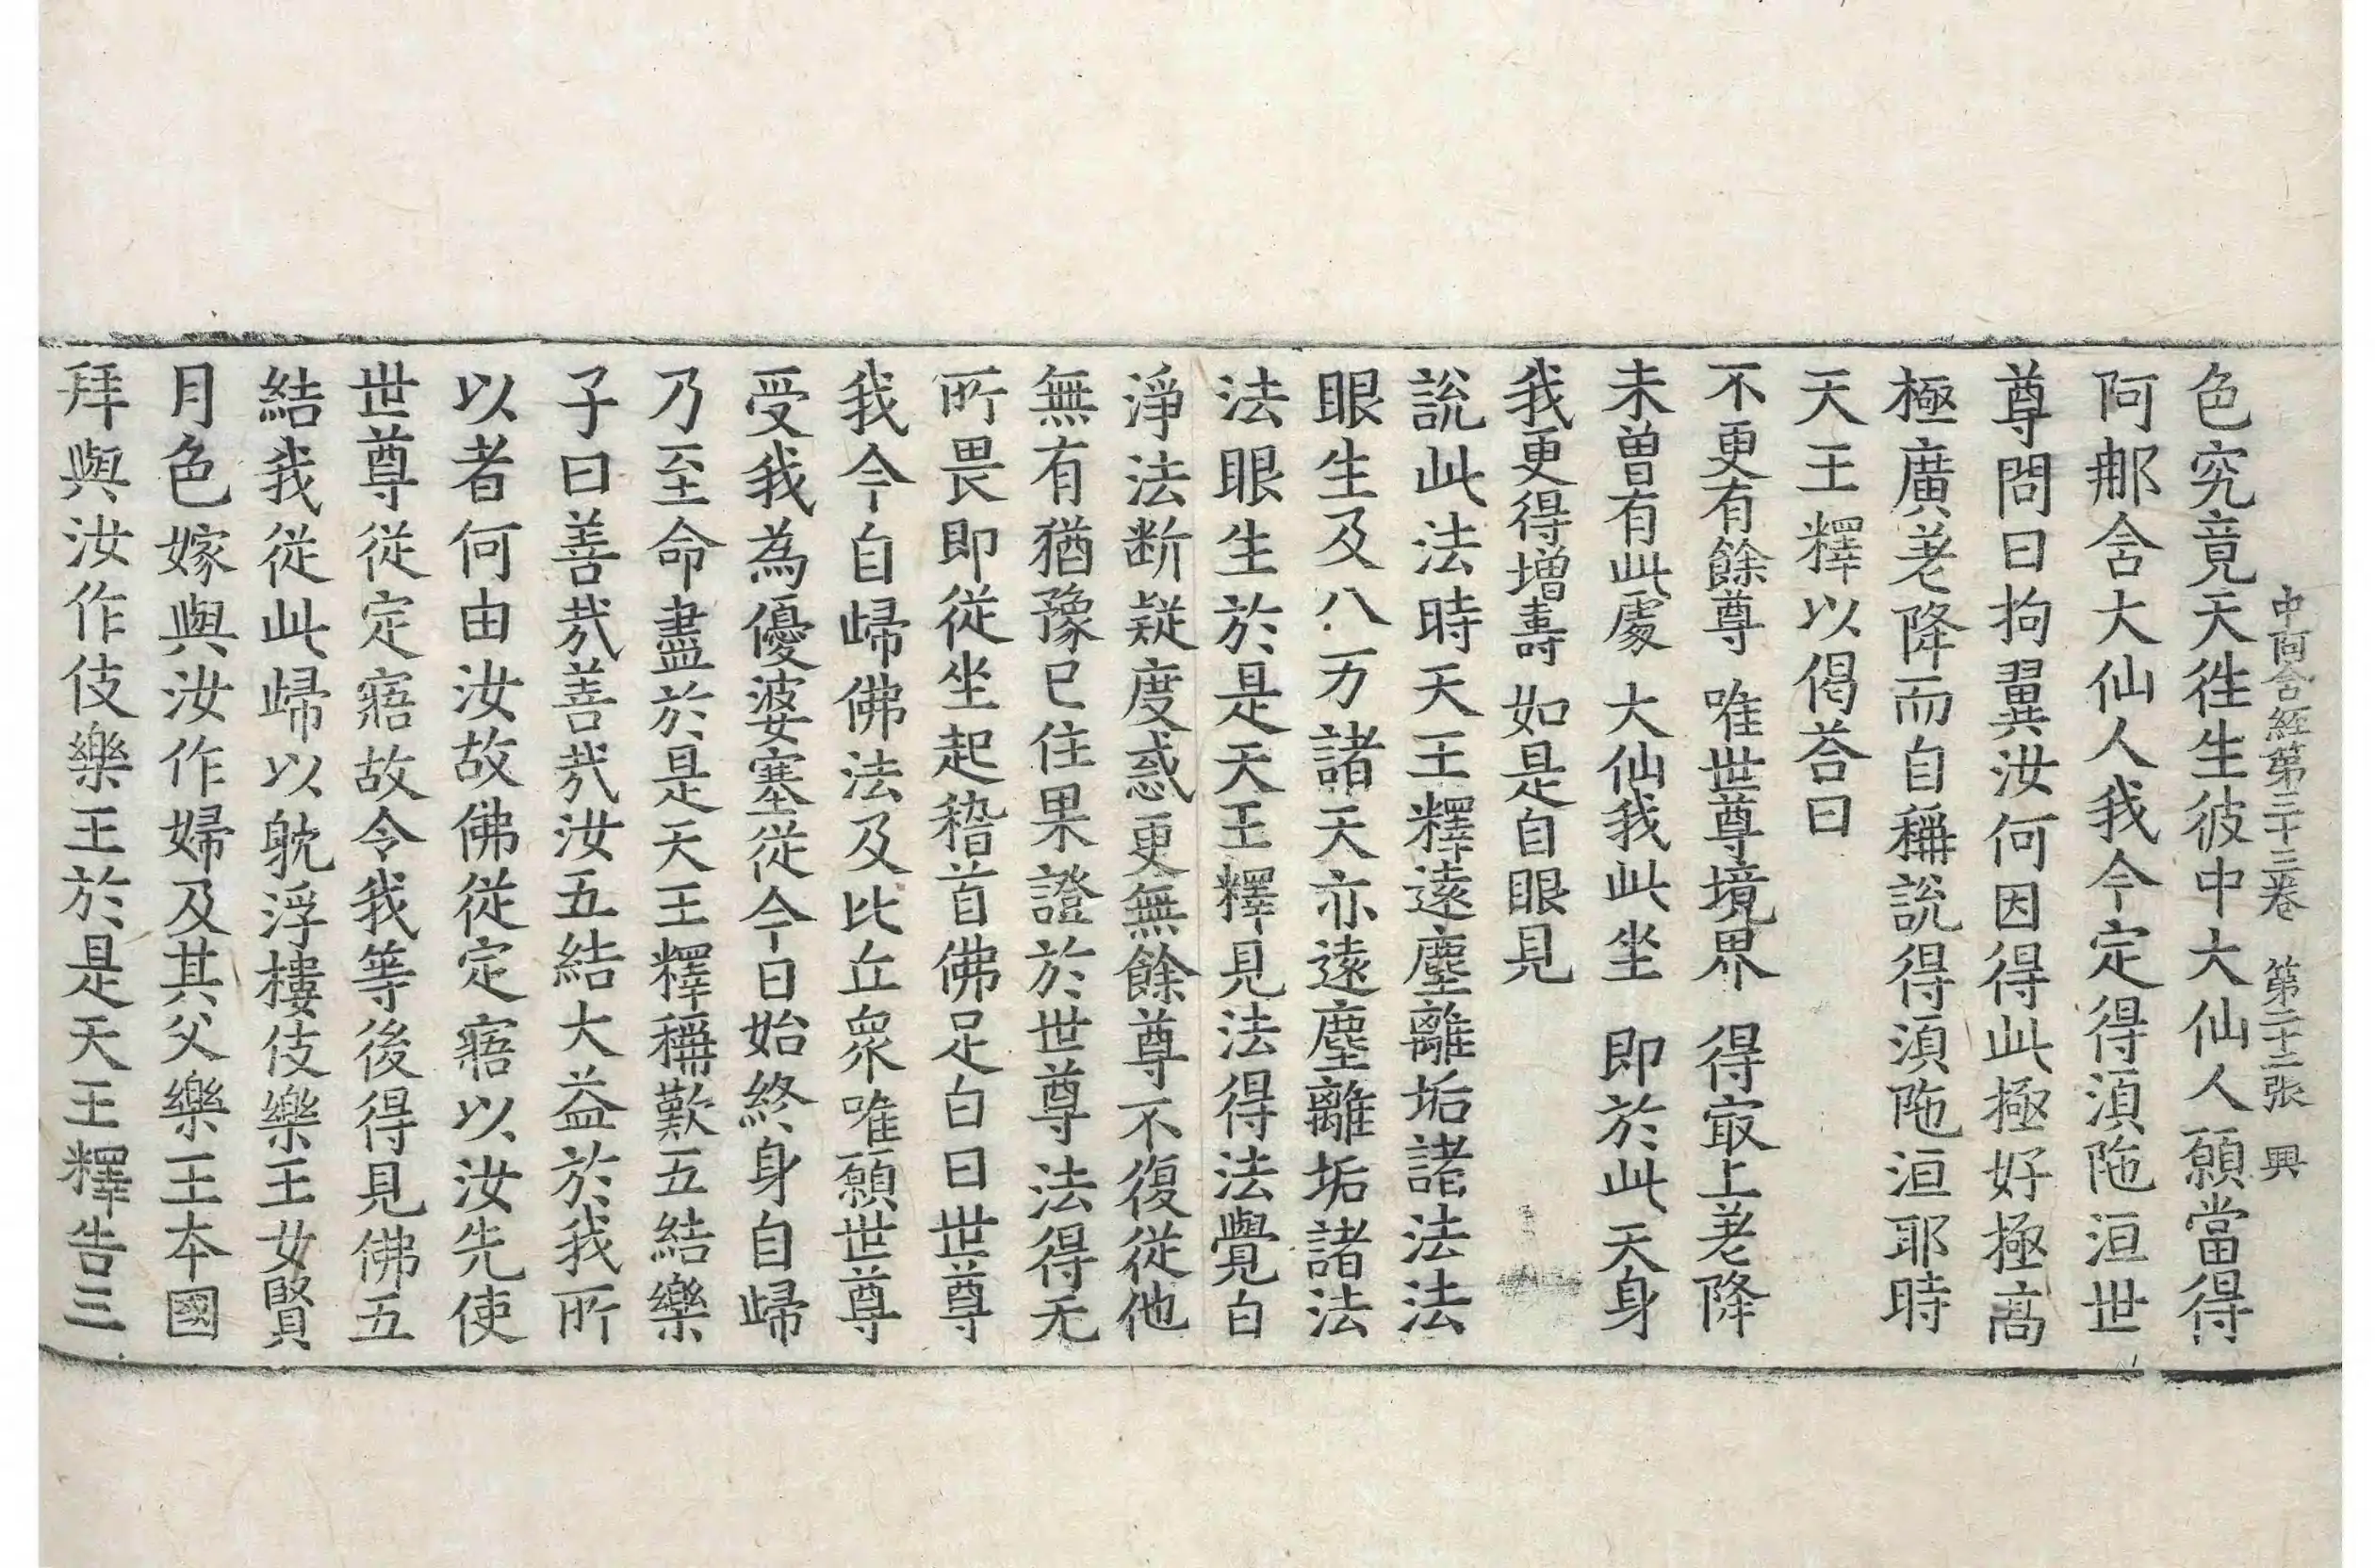 中阿含經第三十三卷 第二十二張 興
色究竟天徃生彼中大仙人願當得
阿那含大仙人我今定得湏陁洹世
尊問曰拘翼汝何因得此極好極高
極廣差降而自稱說得湏陁洹耶時
天王釋以偈荅曰
不更有餘尊 唯世尊境界 得冣上差降
未曽有此處 大仙我此坐 即於此天身
我更得增壽 如是自眼見
說此法時天王釋遠塵離垢諸法法
眼生及八万諸天亦遠塵離垢諸法
法眼生於是天王釋見法得法覺白
淨法断疑度惑更無餘尊不復從他
無有猶豫已住果證於世尊法得无
所畏即從坐起稽首佛足白曰世尊
我今自歸佛法及比丘衆唯願世尊
受我為優婆塞從今日始終身自歸
乃至命盡於是天王釋稱歎五結樂
子曰善㢤善㢤汝五結大益於我所
以者何由汝故佛從定寤以汝先使
世尊從定寤故令我等後得見佛五
結我從此歸以躭浮樓伎樂王女賢
月色嫁與汝作婦及其父樂王本國
拜與汝作伎樂王於是天王釋告三